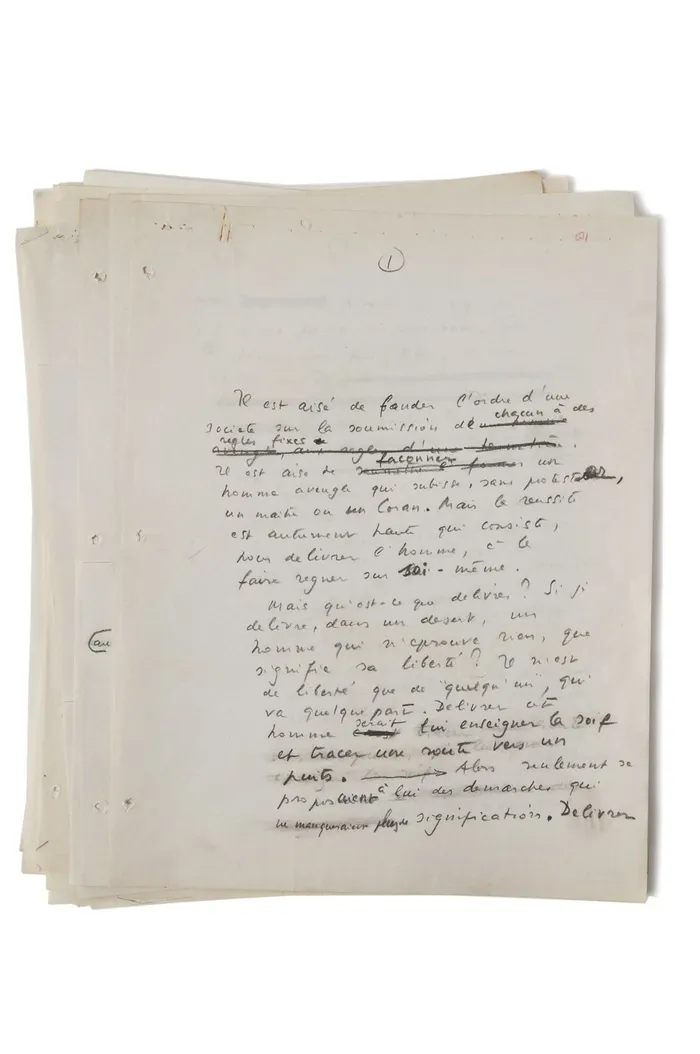 91
1
Il est aisé de fonder l'ordre d'une
société sur la soumission de chacun à des
règles fixes.
Il est aisé de façonner un
homme aveugle qui subisse, sans protester,
un maître ou un Coran. Mais la réussite
est autrement haute qui consiste,
pour delivrer l'homme, à le
faire regner sur soi-même.
Mais qu'est-ce que delivrer? Si je
delivre, dans un desert, un
homme qui n'eprouve rien, que
signifie sa liberté? Il n'est
de liberté que de "quelqu'un", qui
va quelque part. Delivrer cet
homme serait lui enseigner la soif
et tracer une route vers un
puits. Alors seulement se
proposeraient à lui des demarches qui
ne manqueraient plus de signification. Delivrer